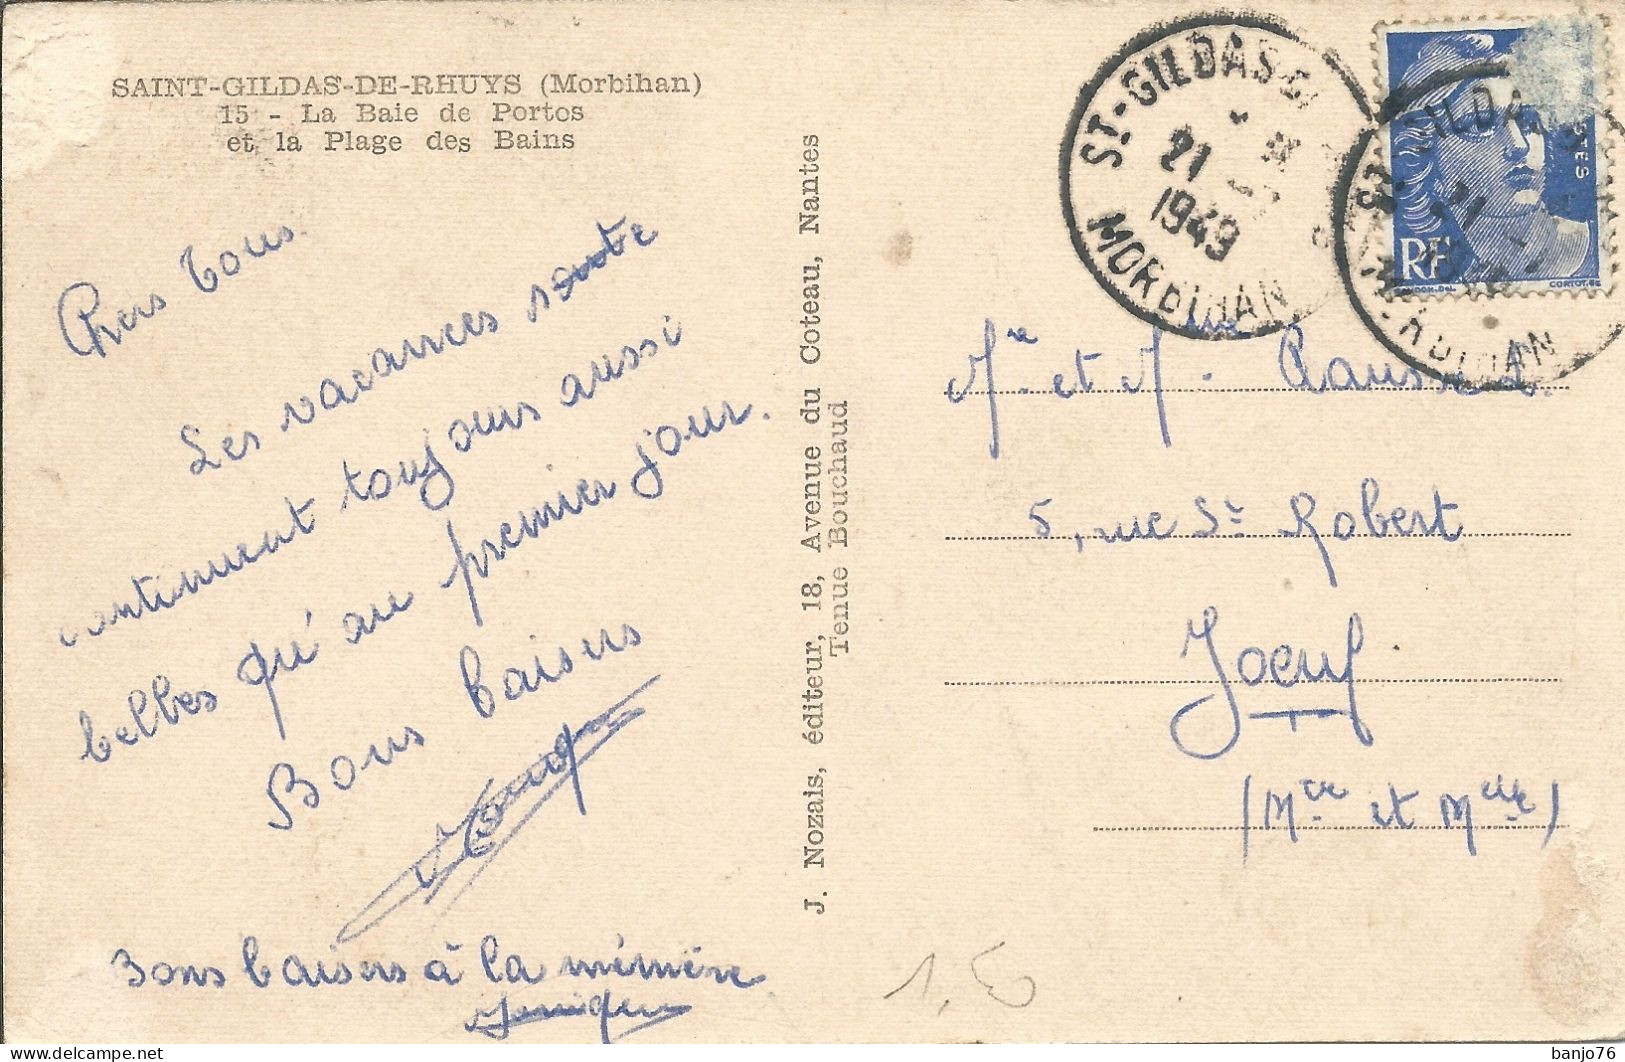 SAINT-GILDAS-DE-RHUYS (Morbihan)
15 - La Baie de Portos
et la Plage des Bains
Chers tous.
Les vacances
continuent toujours aussi
belles qu'au premier jour.
Bons baisers
Bons baisers à la mémère.
J. Nozais, éditeur, 18, Avenue du Coteau, Nantes
Tenue Bouchaud
ST-GILDAS
21
1949
MORBIHAN
POSTES
RF
CORTOT.SC
Mr et Mme
5, rue St Robert
Joeuf
(Mthe et Melle)
1,50
banjo76